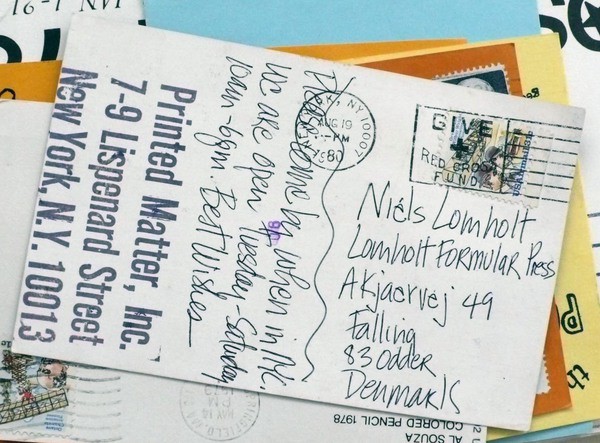 Printed Matter, Inc.
7-9 Lispenard Street
New York, N.Y. 10013
Please come by when in NYC.
We are open Tuesday - Saturday
10am - 6pm. Best Wishes—
NY 10007
AUG 19
PM
1980
RED CROSS
FUND
Niels Lomholt
Lomholt Formular Press
Akjaervej 49
Falling
83 Odder
Denmark
AL SOUZA
COLORED PENCIL 1978